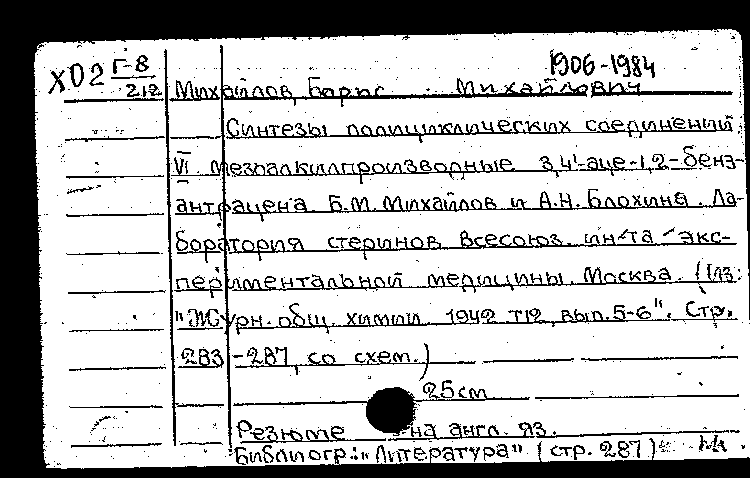 1906-1984
Х02 Г-8
212
Михайлов, Борис Михайлович
Синтезы полициклических соединений.
VI Мезоалкилпроизводные 3,4'-аце-1,2-бенз-
антрацена Б.М. Михайлов и А.Н. Блохина. Ла-
боратория стеринов Всесоюз. ин-та экс-
периментальной медицины. Москва. (Из:
"Журн. общ. химии 1942 т12, вып. 5-6". Стр.
283-287, со схем.)
25см
Резюме на англ. яз.
Библиогр.: "Литература" (стр. 287)